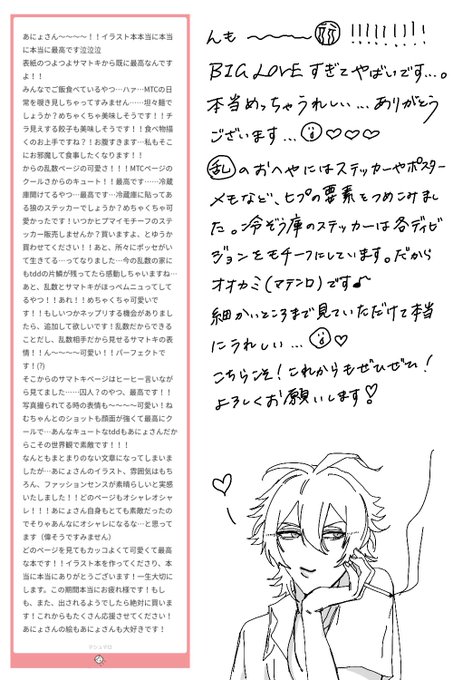 あにょさん〜〜〜〜！！イラスト本本当に本当
に本当に最高です泣泣泣
表紙のつよつよサマトキから既に最高なんです
よ！！
みんなでご飯食べているやつ…ハァ…MTCの日
常を覗き見しちゃってすみません……坦々麺で
しょうか？めちゃくちゃ美味しそうです！！チ
ラ見えする餃子も美味しそうです！！食べ物描
くのお上手ですね？！お腹すきます…私もそこ
にお邪魔して食事したくなります！！
からの乱数ページの可愛さ！！！MTCページの
クールさからのキュート！！最高です……冷蔵
庫開けてるやつ…最高です…冷蔵庫に貼ってあ
る狼のステッカーでしょうか？めちゃくちゃ可
愛かったです！いつかヒプマイモチーフのステッ
カー販売しませんか？買いますよ、とゆうか
買わせてください！！あと、所々にポッセがい
て生きてる…ってなりました…今の乱数の家に
もtddの片鱗が残ってたら感動しちゃいますね…
あと、乱数とサマトキがほっぺムニュってして
るやつ！！あれ！めちゃくちゃ可愛いで
す！！もしいつかネップリする機会がありまし
たら、追加して欲しいです！乱数だからできる
ことだし、乱数相手だから見せるサマトキの表
情！！ん〜〜〜〜可愛い！！パーフェクトで
す！(?)
そこからのサマトキページはヒーヒー言いなが
ら見てました……囚人？のやつ、最高です！！
写真撮られてる時の表情も〜〜〜〜可愛い！ね
むちゃんとのショットも顔面が強くて最高にク
ールで…あんなキュートなtddもあにょさんだか
らこその世界観で素敵です！！！
なんともまとまりのない文章になってしまいま
したが…あにょさんのイラスト、雰囲気はもち
ろん、ファッションセンスが素晴らしいと実感
いたしました！！どのページもオシャレオシャ
レ！！！あにょさん自身もとても素敵だったの
でそりゃあんなにオシャレになるな…と思って
ます（偉そうですみません）
どのページを見てもカッコよくて可愛くて最高
な本です！！イラスト本を作ってくださり、本
当に本当にありがとうございます！一生大切に
します。この期間本当にお疲れ様です！もし
も、また、出されるようでしたら絶対に買いま
す！これからもたくさん応援させてください！
あにょさんの絵もあにょさんも大好きです！
マシュマロ
んも〜〜〜!!!!!!!!
BIG LOVEすぎてやばいです…。
本当めっちゃうれしい…ありがとう
ございます…♡♡♡
乱のおへやにはステッカーやポスター
メモなど、ヒプの要素をつめこみまし
た。冷ぞう庫のステッカーは各ディビ
ジョンをモチーフにしています。だから
オオカミ(マテンロ)です♪
細かいところまで見ていただけて本当
にうれしい…♡
こちらこそ！これからもぜひぜひ！
よろしくお願いします♡